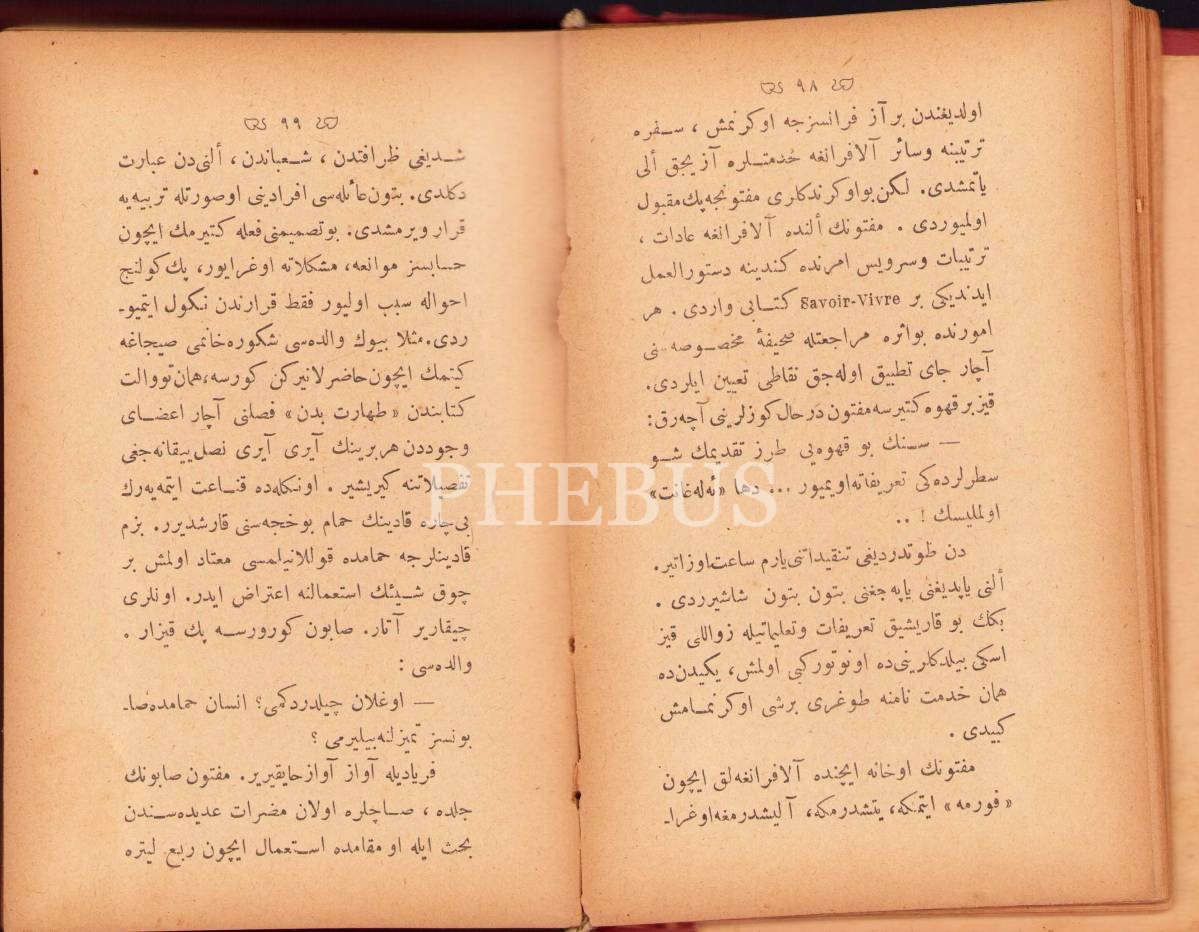 ٩٨
اولديغندن بر آز فرانسزجه اوكرنمش ، سفره
ترتيبنه وسائر آلافرانغه خدمتلره آز يجق ألى
ياتمشدى. لكن بواوكرندكلرى مفتونجه پك مقبول
اولميوردى . مفتونك ألنده آلافرانغه عادات ،
ترتيبات وسرويس امرنده كندينه دستورالعمل
ايدنديكى بر Savoir-Vivre كتابى واردى . هر
امورنده بواثره مراجعتله صحيفهٔ مخصوصه‌سنى
آچار جاى تطبيق اوله‌جق نقاطى تعيين ايلردى.
قيز بر قهوه كتيرسه مفتون درحال كوزلرينى آچه‌رق:
— سنك بو قهوه‌يى طرز تقديمك شو
سطرلرده‌كى تعريفاته اويميور ... دها «ئه‌له‌غانت»
اولمليسك ! ..
دن طوتدرديغى تنقيداتنى يارم ساعت اوزاتير.
ألنى ياپديغنى ياپه‌جغنى بتون بتون شاشيرردى .
بكك بو قاريشيق تعريفات وتعليماتيله زواللى قيز
اسكى بيلدكلرينى‌ده اونوتور كبى اولمش، يكيدن‌ده
همان خدمت نامنه طوغرى برشى اوكرنمامش
كبيدى .
مفتونك اوخانه ايچنده آلافرانغه‌لق ايچون
«فورمه» ايتمكه، يتشدرمكه، آليشدرمغه اوغرا-
٩٩
شديغى ظرافتدن ، شعباندن ، ألنى‌دن عبارت
دكلدى. بتون عائله‌سى افرادينى اوصورتله تربيه‌يه
قرار ويرمشدى. بو تصميمنى فعله كتيرمك ايچون
حسابسز موانعه، مشكلاته اوغرايور، پك كولنج
احواله سبب اوليور فقط قرارندن نكول ايتميو-
ردى. مثلا بيوك والده‌سى شكوره خانمى صيجاغه
كيتمك ايچون حاضرلانيركن كورسه، همان تووالت
كتابندن «طهارت بدن» فصلنى آچار اعضاى
وجوددن هر برينك آيرى آيرى نصل ييقانه‌جغى
تفصيلاتنه كيريشير . اونكله‌ده قناعت ايتمه‌يه‌رك
بى‌چاره قادينك حمام بوخچه‌سنى قارشديرر. بزم
قادينلرجه حمامده قوللانيلمسى معتاد اولمش بر
چوق شيئك استعمالنه اعتراض ايدر. اونلرى
چيقارير آتار. صابون كورورسه پك قيزار .
والده‌سى :
— اوغلان چيلدردكمى؟ انسان حمامده صا-
بونسز تميزلنه‌بيليرمى ؟
فرياديله آواز آواز حايقيرير. مفتون صابونك
جلده ، صاچلره اولان مضرات عديده‌سندن
بحث ايله او مقامده استعمال ايچون ربع ليتره
PHEBUS